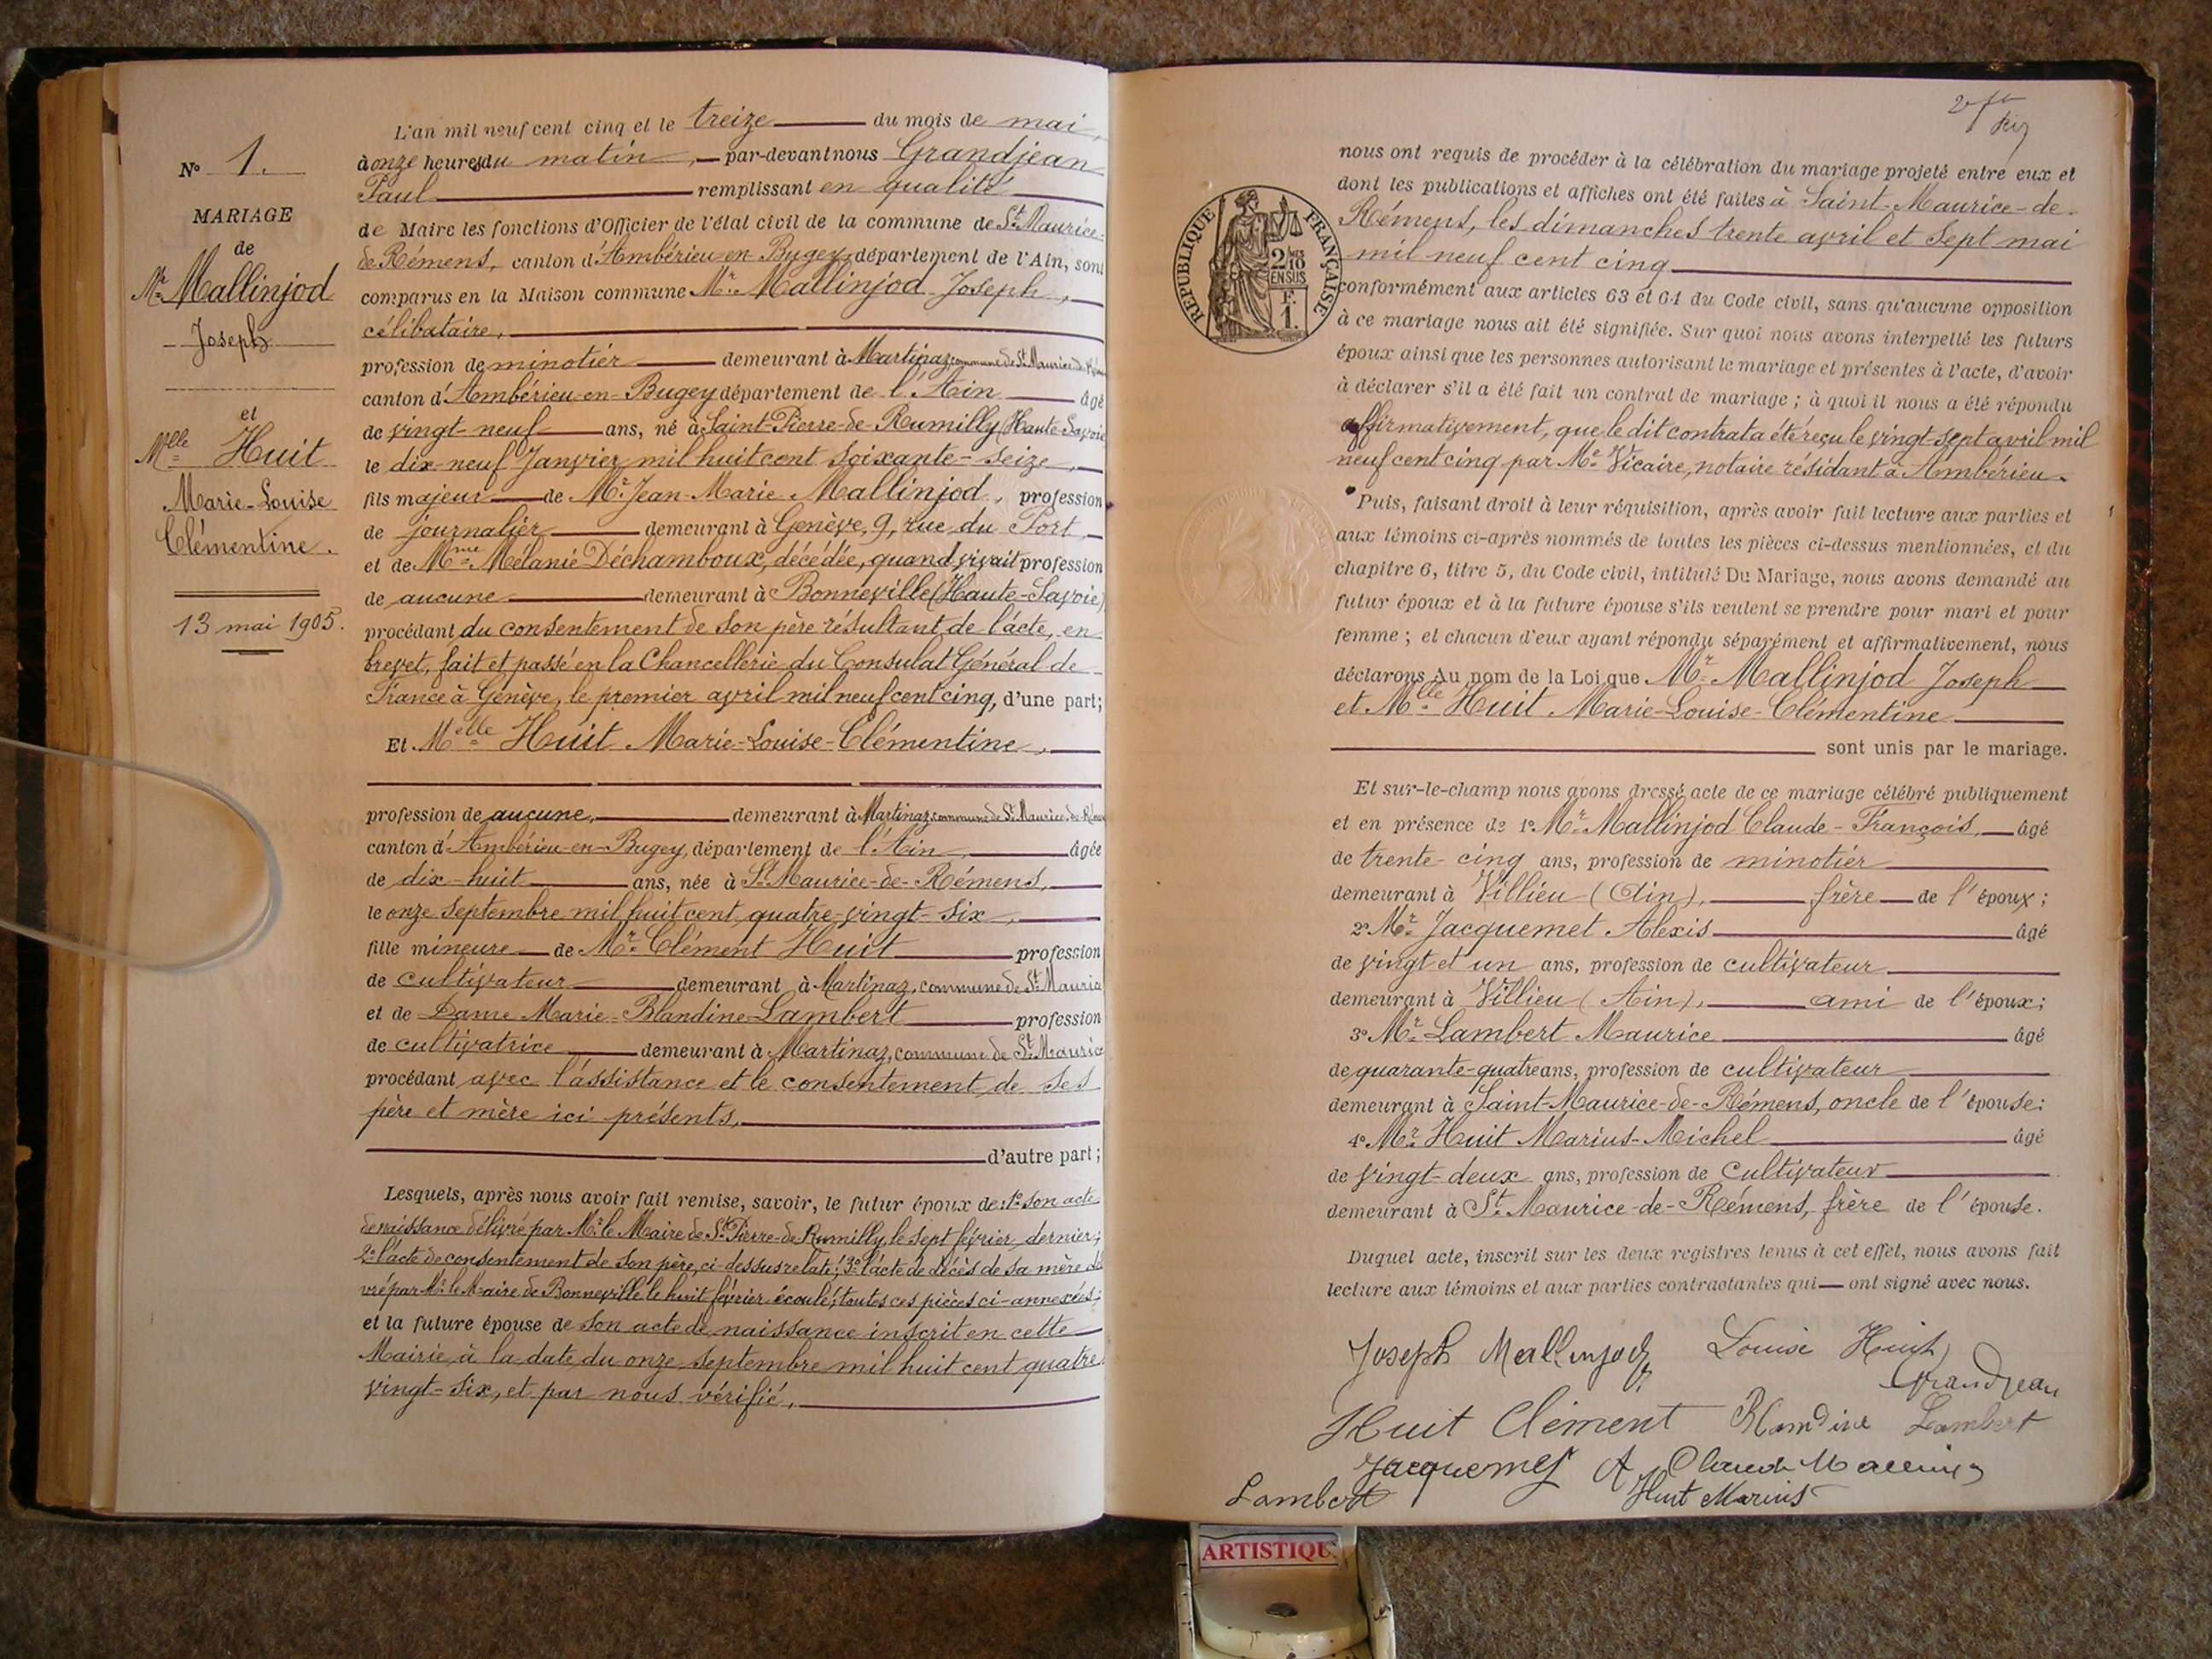 N° 1.
MARIAGE
de
Mr Mallinjod
Joseph
et
Mlle Huit
Marie-Louise
Clémentine.
13 mai 1905.
L'an mil neuf cent cinq et le treize du mois de mai,
à onze heures du matin, par-devant nous Grandjean
Paul remplissant en qualité
de Maire les fonctions d'Officier de l'état civil de la commune de St Maurice-
de Rémens, canton d'Ambérieu-en-Bugey, département de l'Ain, sont
comparus en la Maison commune Mr Mallinjod Joseph,
célibataire,
profession de minotier demeurant à Martinaz, commune de St Maurice de Rémens
canton d'Ambérieu-en-Bugey département de l'Ain âgé
de vingt-neuf ans, né à Saint-Pierre-de-Rumilly (Haute-Savoie
le dix-neuf Janvier mil huit cent soixante-seize,
fils majeur de Mr Jean-Marie Mallinjod, profession
de journalier demeurant à Genève, 9, rue du Port,
et de Mme Mélanie Déchamboux, décédée, quand vivait profession
de aucune demeurant à Bonneville (Haute-Savoie)
procédant du consentement de son père résultant de l'acte, en
brevet, fait et passé en la Chancellerie du Consulat Général de
France à Genève, le premier avril mil neuf cent cinq, d'une part;
Et Melle Huit Marie-Louise-Clémentine,
profession de aucune, demeurant à Martinaz, commune de St Maurice-de-Rémens
canton d'Ambérieu-en-Bugey, département de l'Ain, âgée
de dix-huit ans, née à St Maurice-de-Rémens,
le onze septembre mil huit cent quatre-vingt-six,
fille mineure de Mr Clément Huit profession
de cultivateur demeurant à Martinaz, commune de St Maurice
et de Dame Marie-Blandine Lambert profession
de cultivatrice demeurant à Martinaz, commune de St Maurice
procédant avec l'assistance et le consentement de ses
père et mère ici présents,
d'autre part;
Lesquels, après nous avoir fait remise, savoir, le futur époux de: 1° son acte
de naissance délivré par Mr le Maire de St Pierre-de-Rumilly, le sept février dernier;
2° l'acte de consentement de son père, ci-dessus relaté; 3° l'acte de décès de sa mère déli
vré par Mr le Maire de Bonneville le huit février écoulé; toutes ces pièces ci-annexées;
et la future épouse de son acte de naissance inscrit en cette
Mairie à la date du onze septembre mil huit cent quatre
vingt-six, et par nous vérifié,
nous ont requis de procéder à la célébration du mariage projeté entre eux et
dont les publications et affiches ont été faites à Saint-Maurice-de-
Rémens, les dimanches trente avril et sept mai
mil neuf cent cinq
RÉPUBLIQUE FRANÇAISE
2/10
EN SUS
F.
1.
conformément aux articles 63 et 64 du Code civil, sans qu'aucune opposition
à ce mariage nous ait été signifiée. Sur quoi nous avons interpellé les futurs
époux ainsi que les personnes autorisant le mariage et présentes à l'acte, d'avoir
à déclarer s'il a été fait un contrat de mariage; à quoi il nous a été répondu
affirmativement, que le dit contrat a été reçu le vingt-sept avril mil
neuf cent cinq par Me Vicaire, notaire résidant à Ambérieu.
Puis, faisant droit à leur réquisition, après avoir fait lecture aux parties et
aux témoins ci-après nommés de toutes les pièces ci-dessus mentionnées, et du
chapitre 6, titre 5, du Code civil, intitulé Du Mariage, nous avons demandé au
futur époux et à la future épouse s'ils veulent se prendre pour mari et pour
femme; et chacun d'eux ayant répondu séparément et affirmativement, nous
déclarons Au nom de la Loi que Mr Mallinjod Joseph
et Mlle Huit Marie-Louise-Clémentine
sont unis par le mariage.
Et sur-le-champ nous avons dressé acte de ce mariage célébré publiquement
et en présence de 1° Mr Mallinjod Claude-François, âgé
de trente-cinq ans, profession de minotier
demeurant à Villieu (Ain), frère de l'époux;
2° Mr Jacquemet Alexis âgé
de vingt et un ans, profession de cultivateur
demeurant à Villieu (Ain), ami de l'époux;
3° Mr Lambert Maurice âgé
de quarante-quatre ans, profession de cultivateur
demeurant à Saint-Maurice-de-Rémens, oncle de l'épouse;
4° Mr Huit Marius-Michel âgé
de vingt-deux ans, profession de cultivateur
demeurant à St Maurice-de-Rémens, frère de l'épouse.
Duquel acte, inscrit sur les deux registres tenus à cet effet, nous avons fait
lecture aux témoins et aux parties contractantes qui ont signé avec nous.
Joseph Mallinjod Louise Huit
Grandjean
Huit Clément Blandine Lambert
Jacquemet A Claude
Lambert Huit Marius
ARTISTIQU